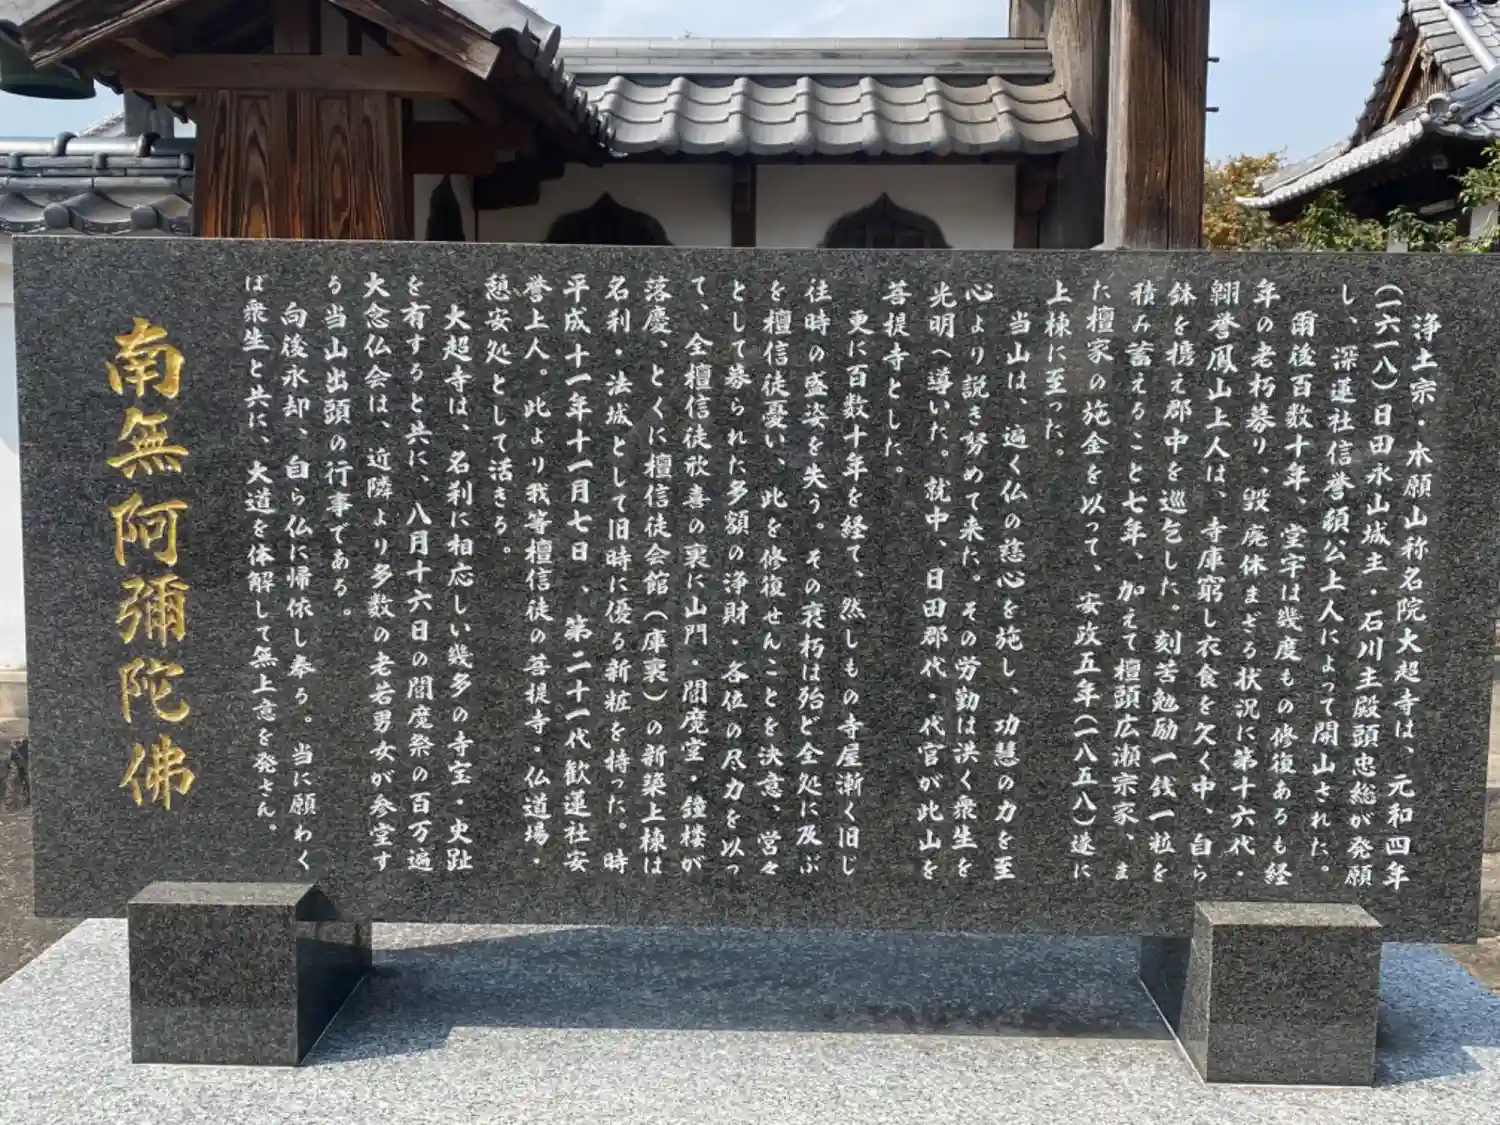 浄土宗・本願山称名院大超寺は、元和四年
(一六一八)日田永山城主・石川主殿頭忠総が発願
し、深蓮社信誉頟公上人によって開山された。
爾後百数十年、堂宇は幾度もの修復あるも経
年の老朽募り、毀廃休まざる状況に第十六代・
翺誉鳳山上人は、寺庫窮し衣食を欠く中、自ら
鉢を携え郡中を巡乞した。刻苦勉励一銭一粒を
積み蓄えること七年、加えて檀頭広瀬宗家、ま
た檀家の施金を以って、安政五年(一八五八)遂に
上棟に至った。
当山は、遍く仏の慈心を施し、功慧の力を至
心より説き努めて来た。その労勤は洪く衆生を
光明へ導いた。就中、日田郡代・代官が此山を
菩提寺とした。
更に百数十年を経て、然しもの寺屋漸く旧じ
往時の盛姿を失う。その衰朽は殆ど全処に及ぶ
を檀信徒憂い、此を修復せんことを決意、営々
として募られた多額の浄財・各位の尽力を以っ
て、全檀信徒歓喜の裏に山門・閻魔堂・鐘楼が
落慶、とくに檀信徒会館(庫裏)の新築上棟は
名刹・法城として旧時に優る新粧を持った。時
平成十一年十一月七日、第二十一代歓蓮社安
誉上人。此より我等檀信徒の菩提寺・仏道場・
憩安処として活きる。
大超寺は、名刹に相応しい幾多の寺宝・史趾
を有すると共に、八月十六日の閻魔祭の百万遍
大念仏会は、近隣より多数の老若男女が参堂す
る当山出頭の行事である。
向後永却、自ら仏に帰依し奉る。当に願わく
ば衆生と共に、大道を体解して無上意を発さん。
南無阿彌陀佛